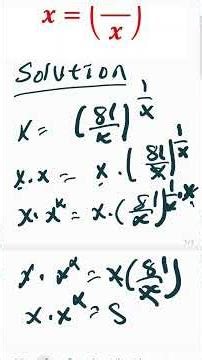 x = ( / x )
Solution
x = (81/x)^(1/x)
x.x = x.(81/x)^(1/x)
x.x^x = x.(81/x)^(1/x . x)
x.x^x = x(81/x)
x.x^x = 8